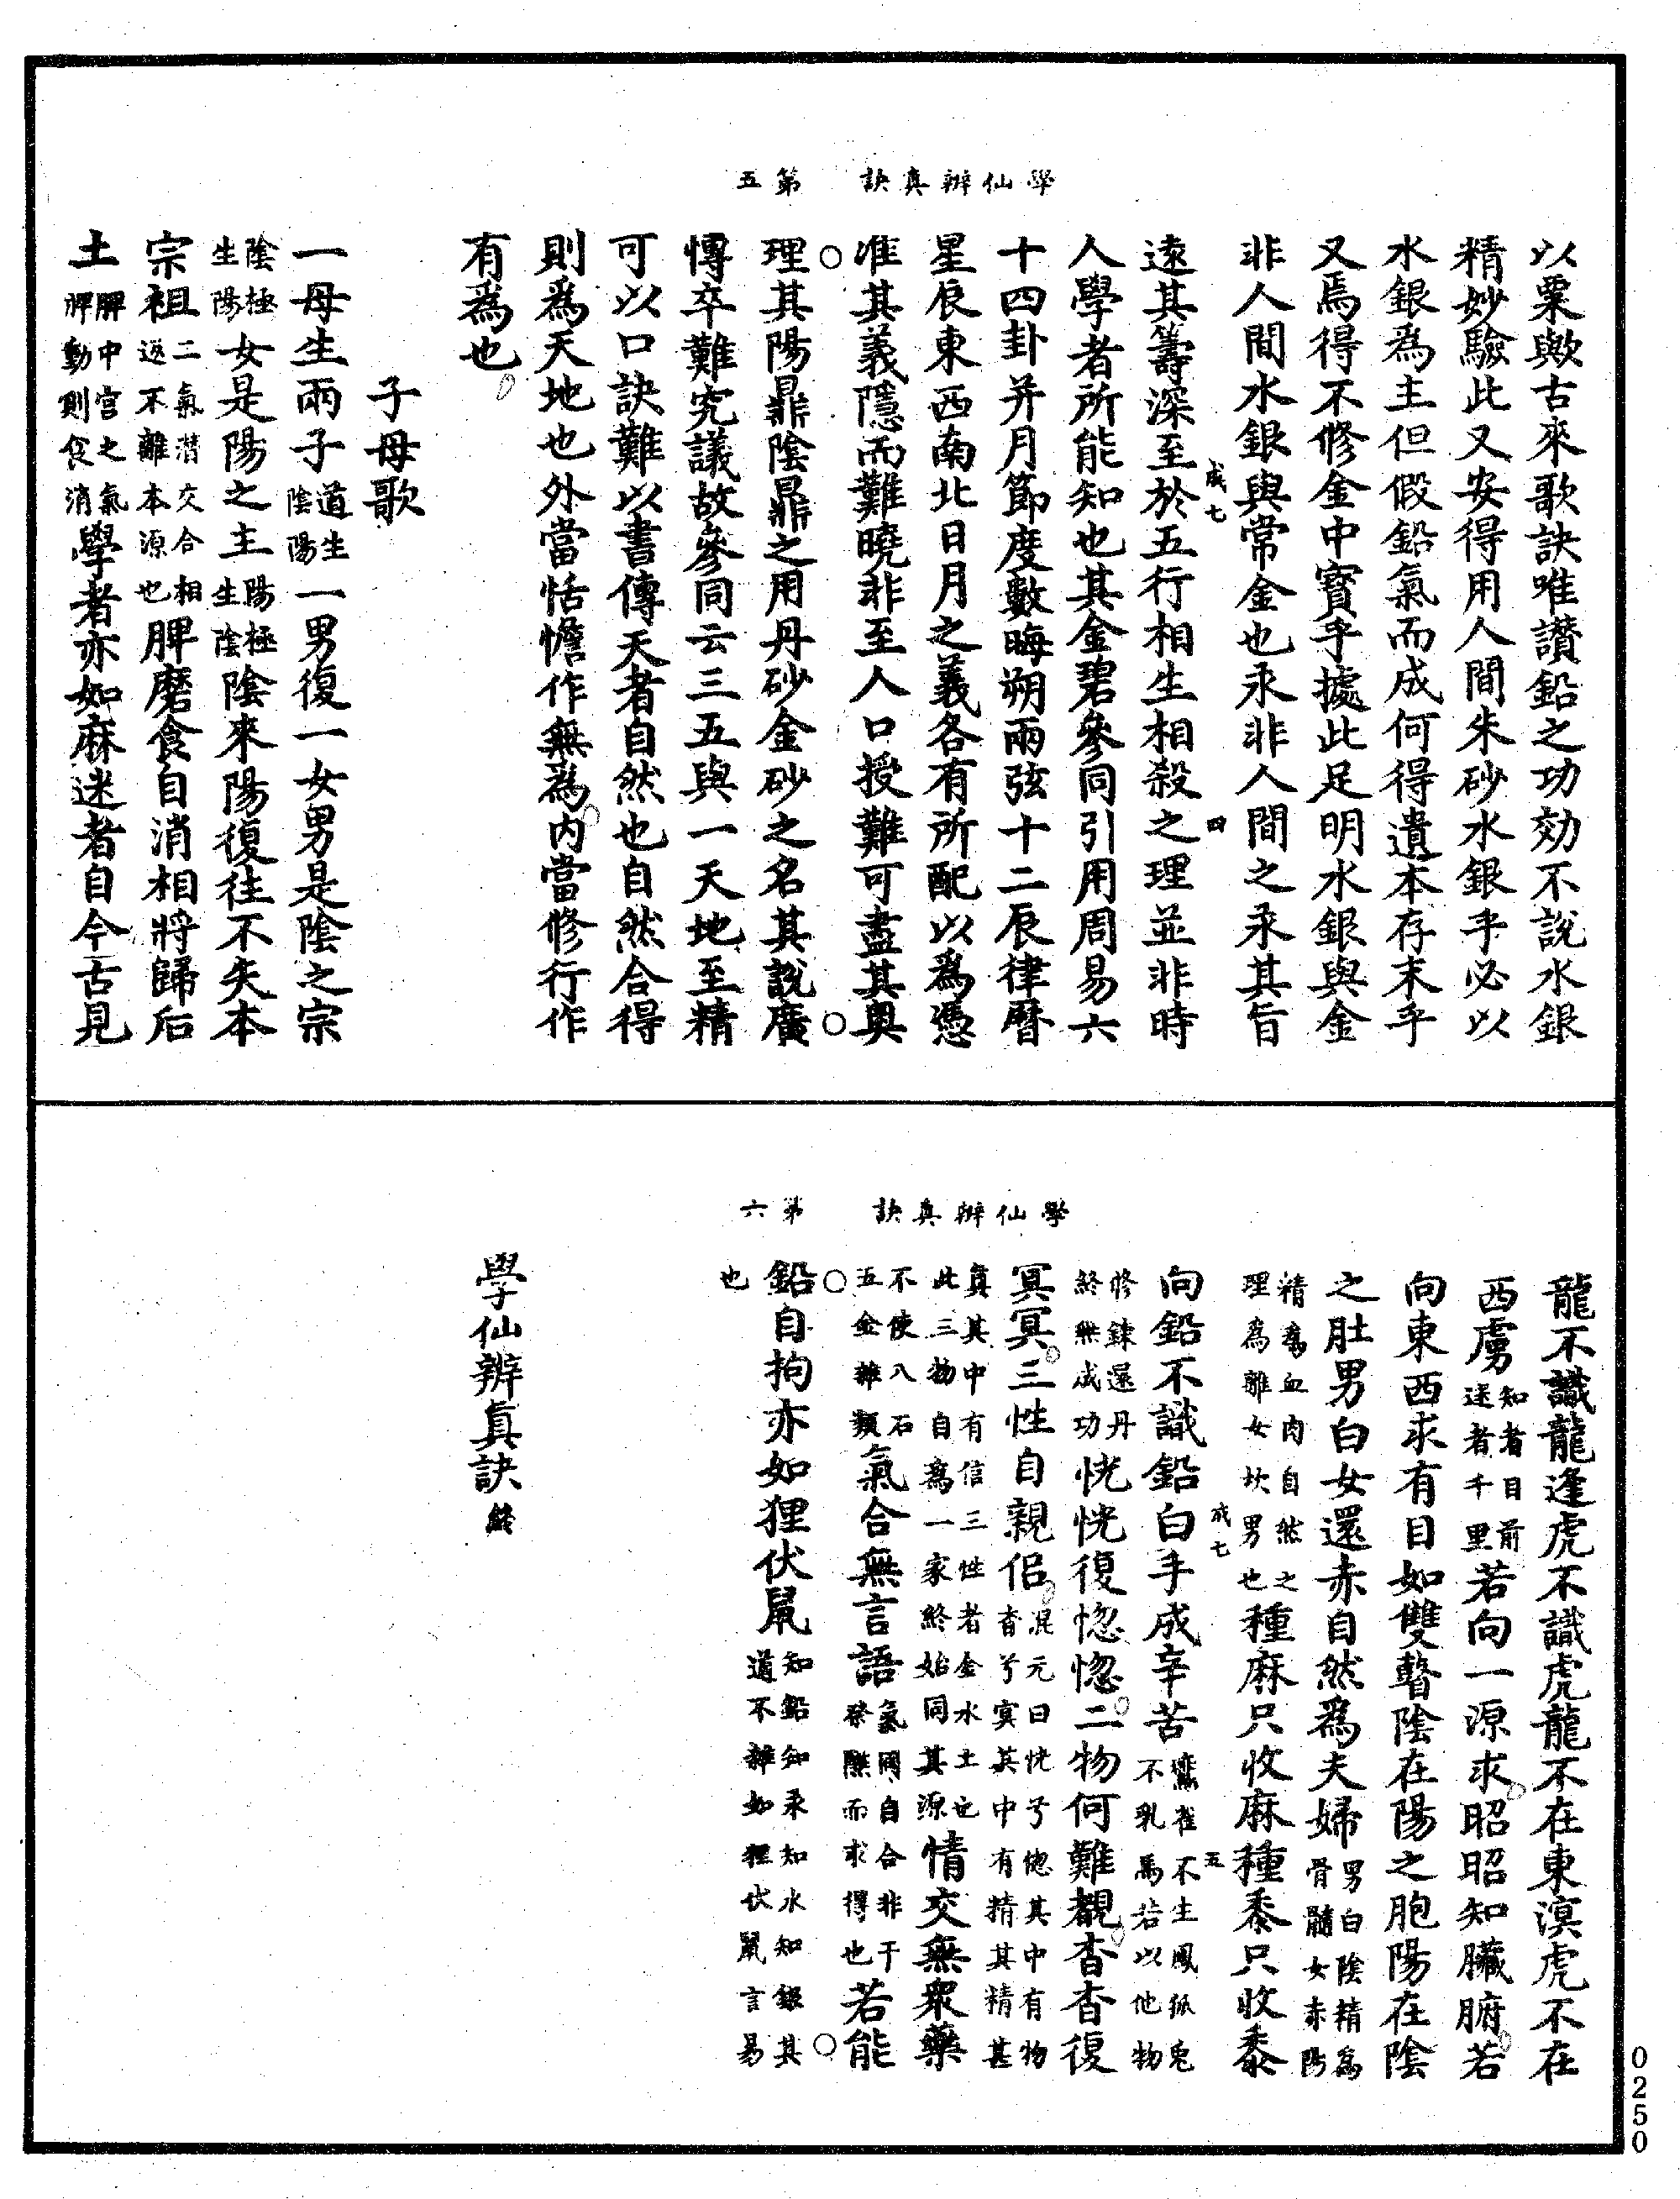 學仙辨真訣　第五
以粟歟古來歌訣唯讚鉛之功効不說水銀
精妙驗此又安得用人間朱砂水銀乎必以
水銀爲主但假鉛氣而成何得遺本存末乎
又焉得不修金中寶乎據此足明水銀與金
非人間水銀與常金也汞非人間之汞其旨
成七　四
遠其籌深至於五行相生相殺之理並非時
人學者所能知也其金碧參同引用周易六
十四卦并月節度數晦朔兩弦十二辰律曆
星辰東西南北日月之義各有所配以爲憑
准其義隱而難曉非至人口授難可盡其奧
理其陽鼎陰鼎之用丹砂金砂之名其說廣
慱卒難究議故參同云三五與一天地至精
可以口訣難以書傳天者自然也自然合得
則爲天地也外當恬憺作無爲內當修行作
有爲也
子母歌
一母生兩子道生陰陽一男復一女男是陰之宗
陰極生陽女是陽之主陽極生陰陰來陽復往不失本
宗祖二氣潛交合相返不離本源也脾磨食自消相將歸后
土脾中宮之氣脾動則食消學者亦如麻迷者自今古見
學仙辨真訣　第六
龍不識龍逢虎不識虎龍不在東溟虎不在
西虜知者目前迷者千里若向一源求昭昭知臟腑若
向東西求有目如雙瞽陰在陽之胞陽在陰
之肚男白女還赤自然爲夫婦男白陰精爲骨髓女赤陽
精爲血肉自然之理爲離女坎男也種麻只收麻種黍只收黍
成七　五
向鉛不識鉛白手成辛苦鸞雀不生鳳狐兔不乳馬若以他物
修鍊還丹終無成功恍恍復惚惚二物何難覩杳杳復
冥冥三性自親侶混元曰恍兮惚其中有物杳兮冥其中有精其精甚
真其中有信三性者金水土也此三物自爲一家終始同其源情交無衆藥
不使八石五金雜類氣合無言語氣同自合非干發際而求得也若能
鉛自拘亦如狸伏鼠知鉛知汞知水知銀其道不雜如狸伏鼠言易
也
學仙辨真訣終
0250